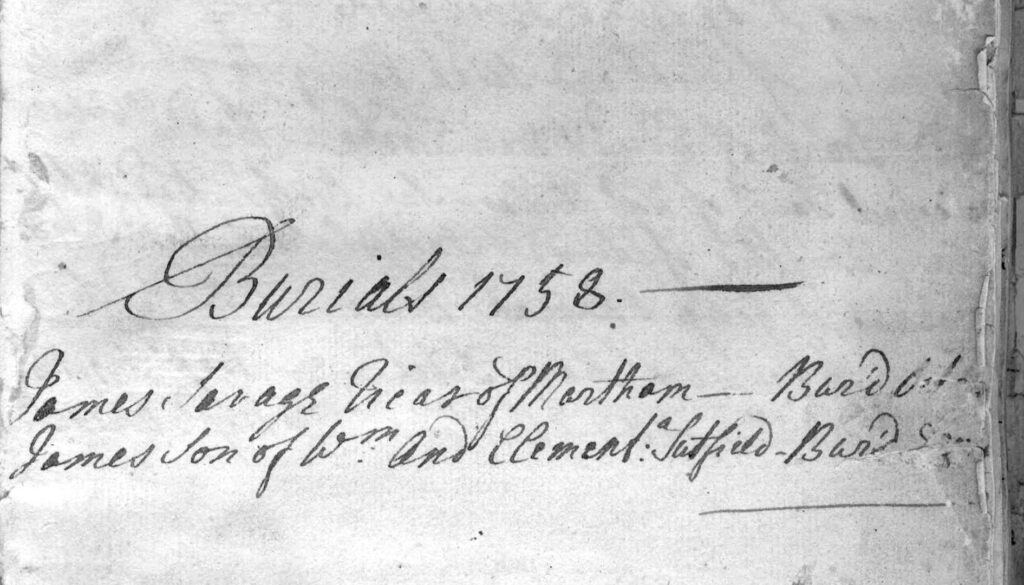 Burials 1758. —
James Savage Vicar of Martham — Bur'd Oct
James Son of Wm. And Clement:a Sutfield - Bur'd